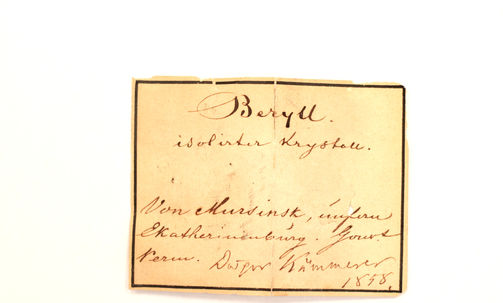 Beryll.
isolirter Krystall.
Von Mursinsk, unfern
Ekatherinenburg. Gouvt
Perm. Kämmerer
1858.